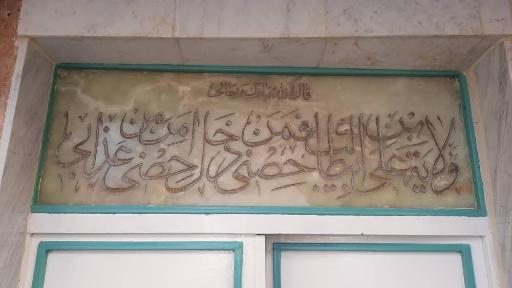 قال الله تبارک و تعالی
ولایة علی بن ابیطالب حصنی فمن دخل حصنی امن من عذابی